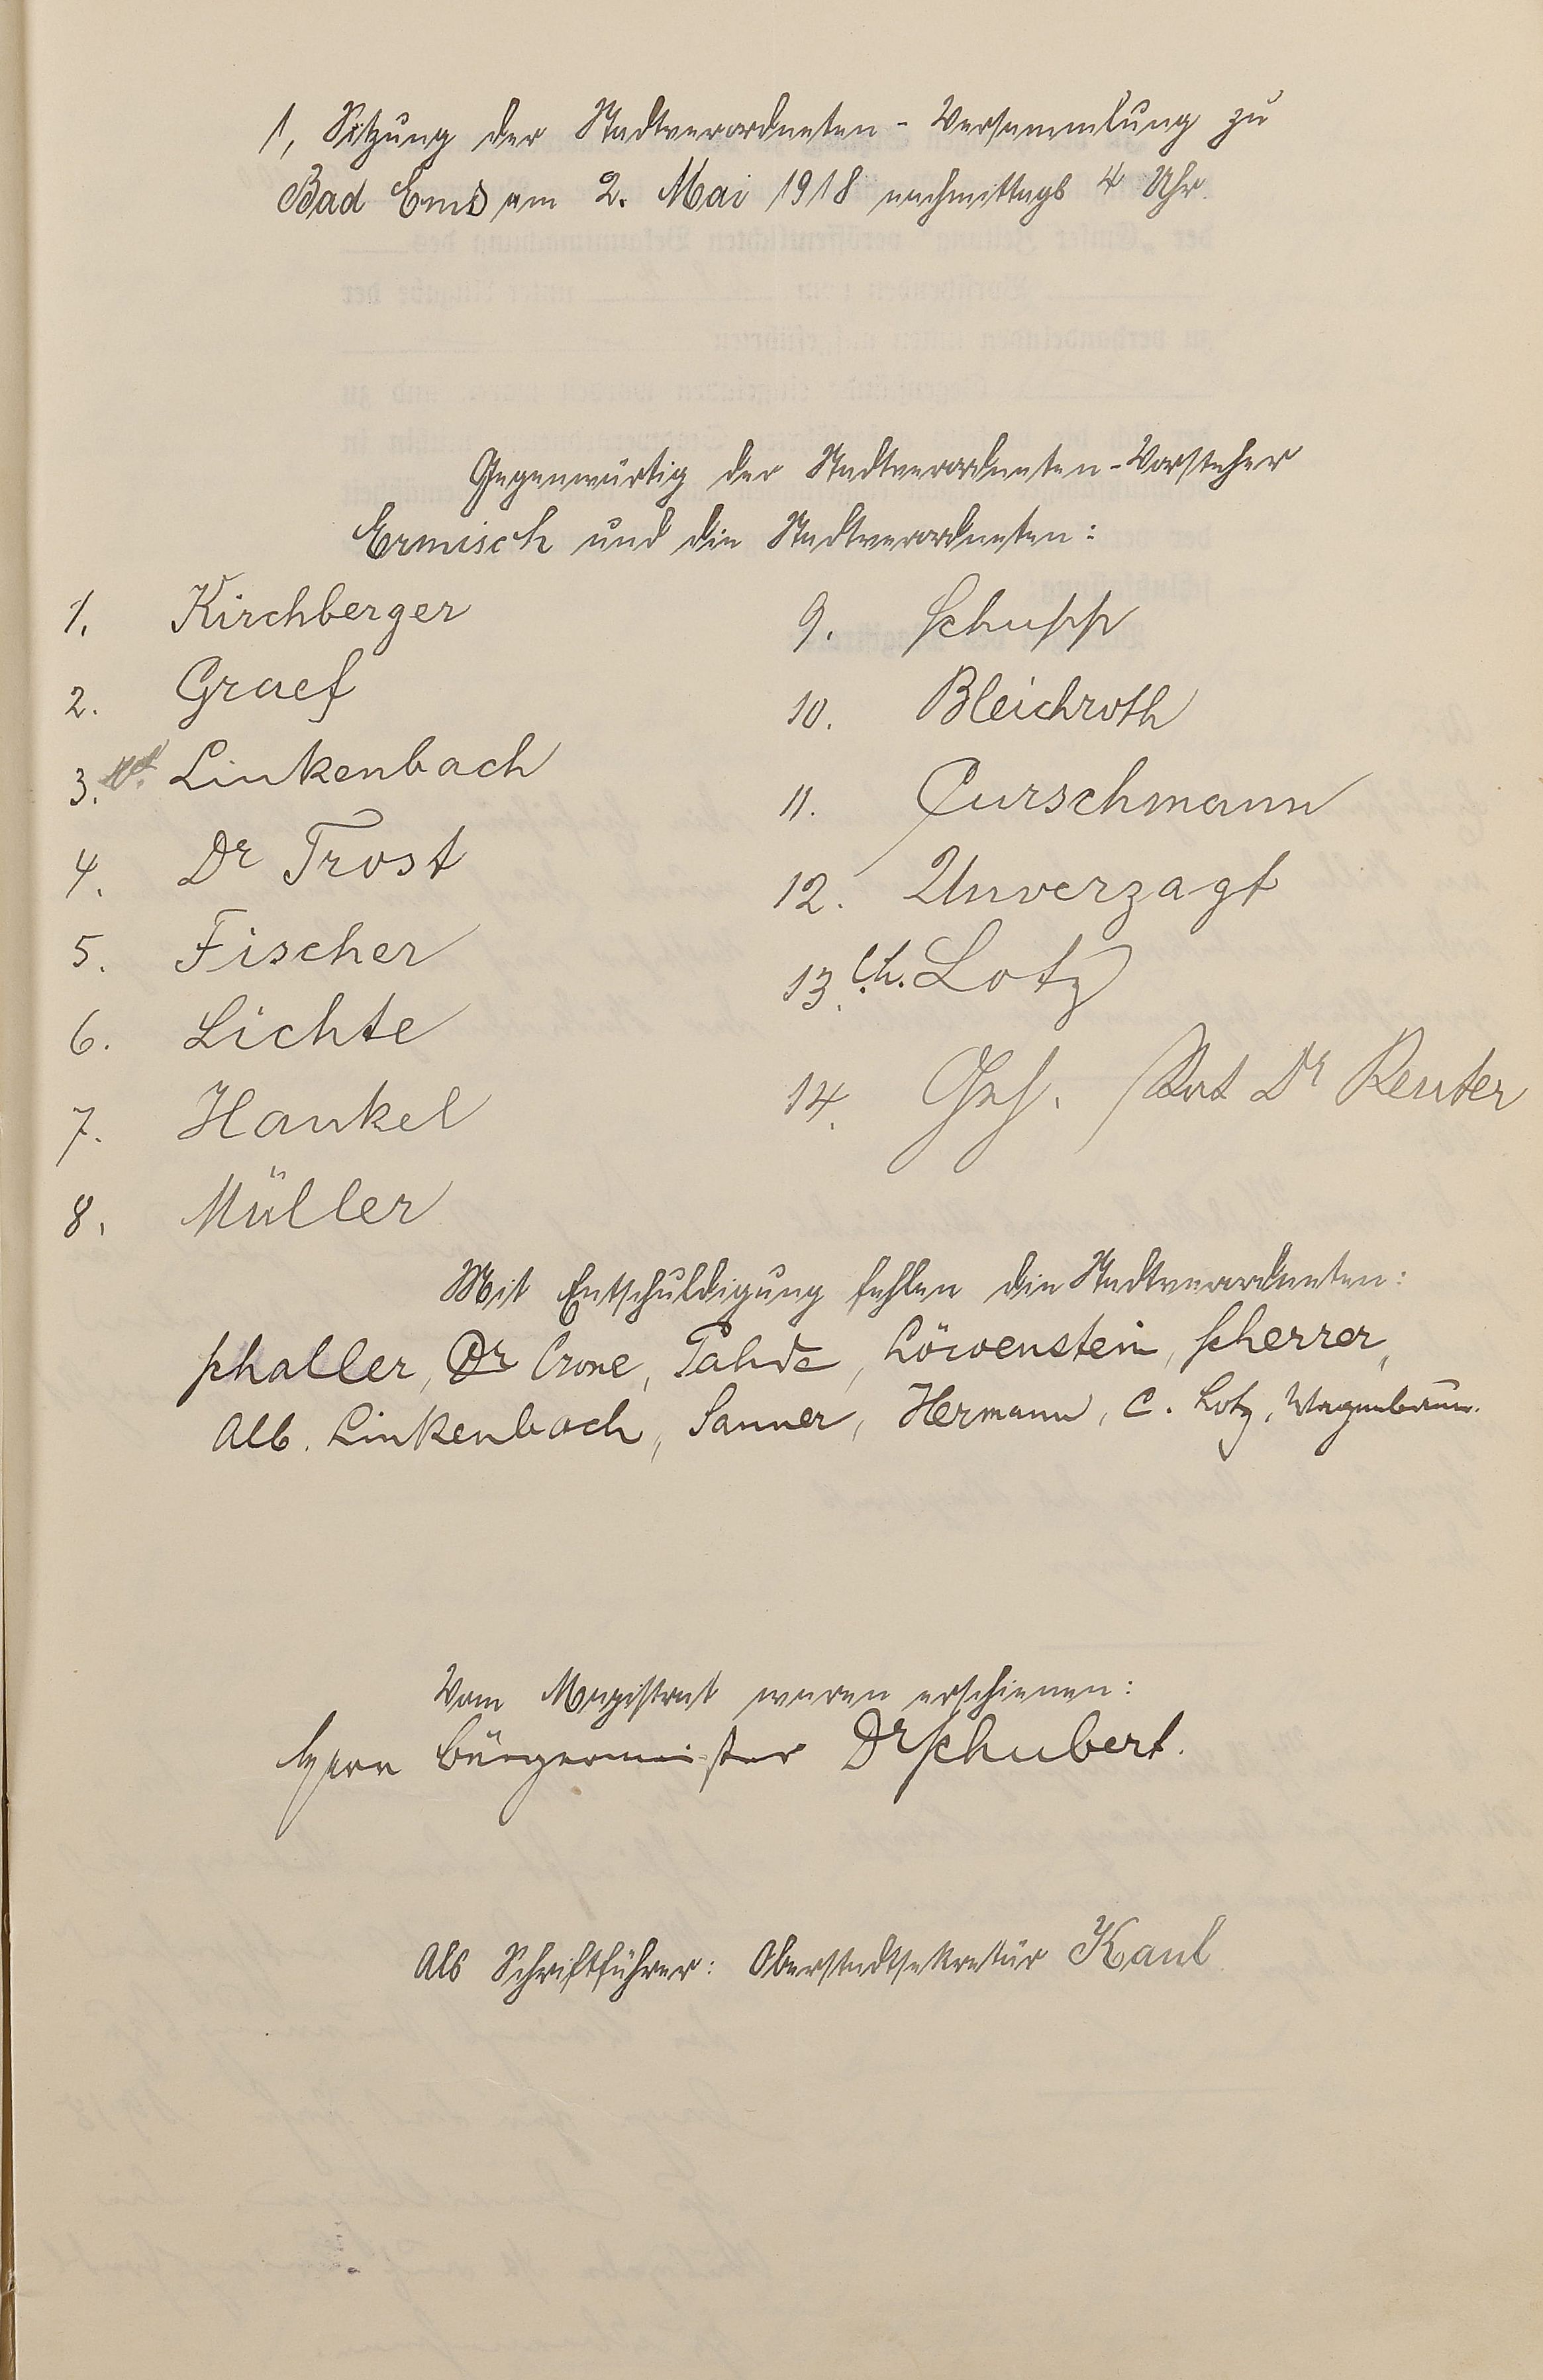 1, Sitzung der Stadtverordneten-Versammlung zu
Bad Ems am 2. Mai 1918 nachmittags 4 Uhr.
Gegenwärtig der Stadtverordneten-Vorsteher
Ermisch und die Stadtverordneten:
1. Kirchberger
2. Graef
3. Linkenbach
4. Dr Trost
5. Fischer
6. Lichte
7. Hankel
8. Müller
9. Schupp
10. Bleichroth
11. Curschmann
12. Unverzagt
13. Ch. Lotz
14. Geh. Rat Dr Reuter
Mit Entschuldigung fehlen die Stadtverordneten:
Schaller, Dr Crone, Löwenstein, Scherrer,
Alb. Linkenbach, Sanner, Hermann, C. Lotz, Wagenbaum.
Vom Magistrat waren erschienen:
Herr Bürgermeister Dr Schubert.
Als Schriftführer: Oberstadtsekretär Kaul.